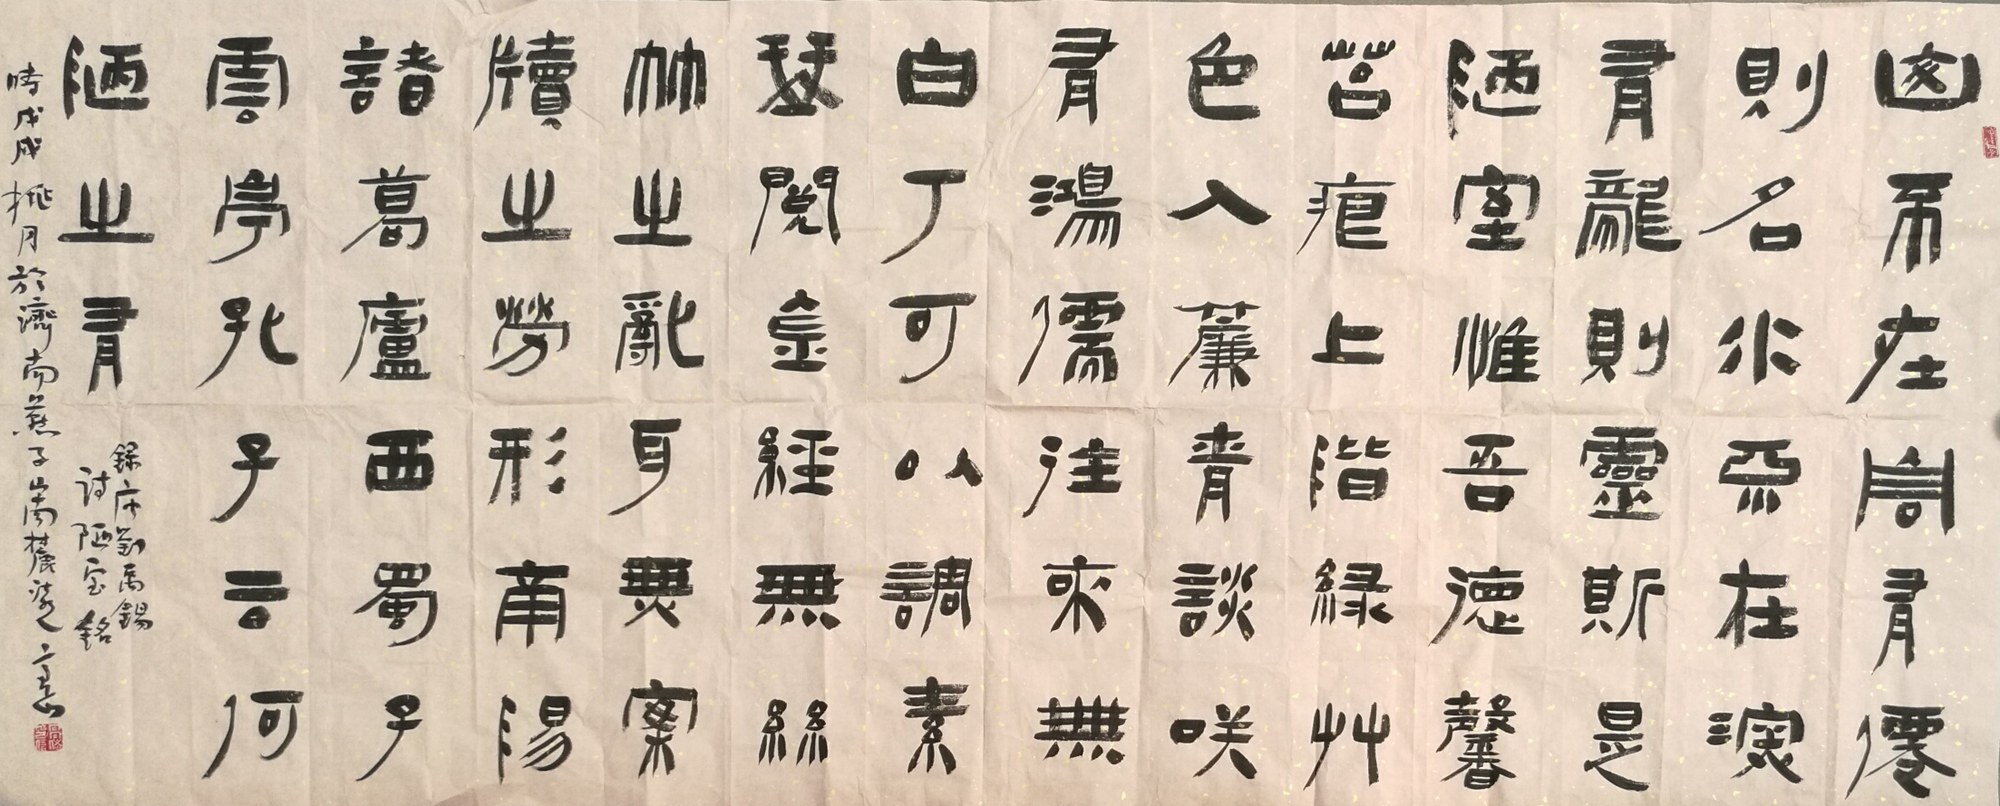 山不在高有僊
則名水不在深
有龍則靈斯是
陋室惟吾德馨
苔痕上階緑艸
色入簾青談咲
有鴻儒往來無
白丁可以調素
琴閲金經無絲
竹之亂耳無案
牘之勞形南陽
諸葛廬西蜀子
雲亭孔子云何
陋之有
録唐劉禹錫
詩陋室銘
時戊戌桃月於濟南燕子